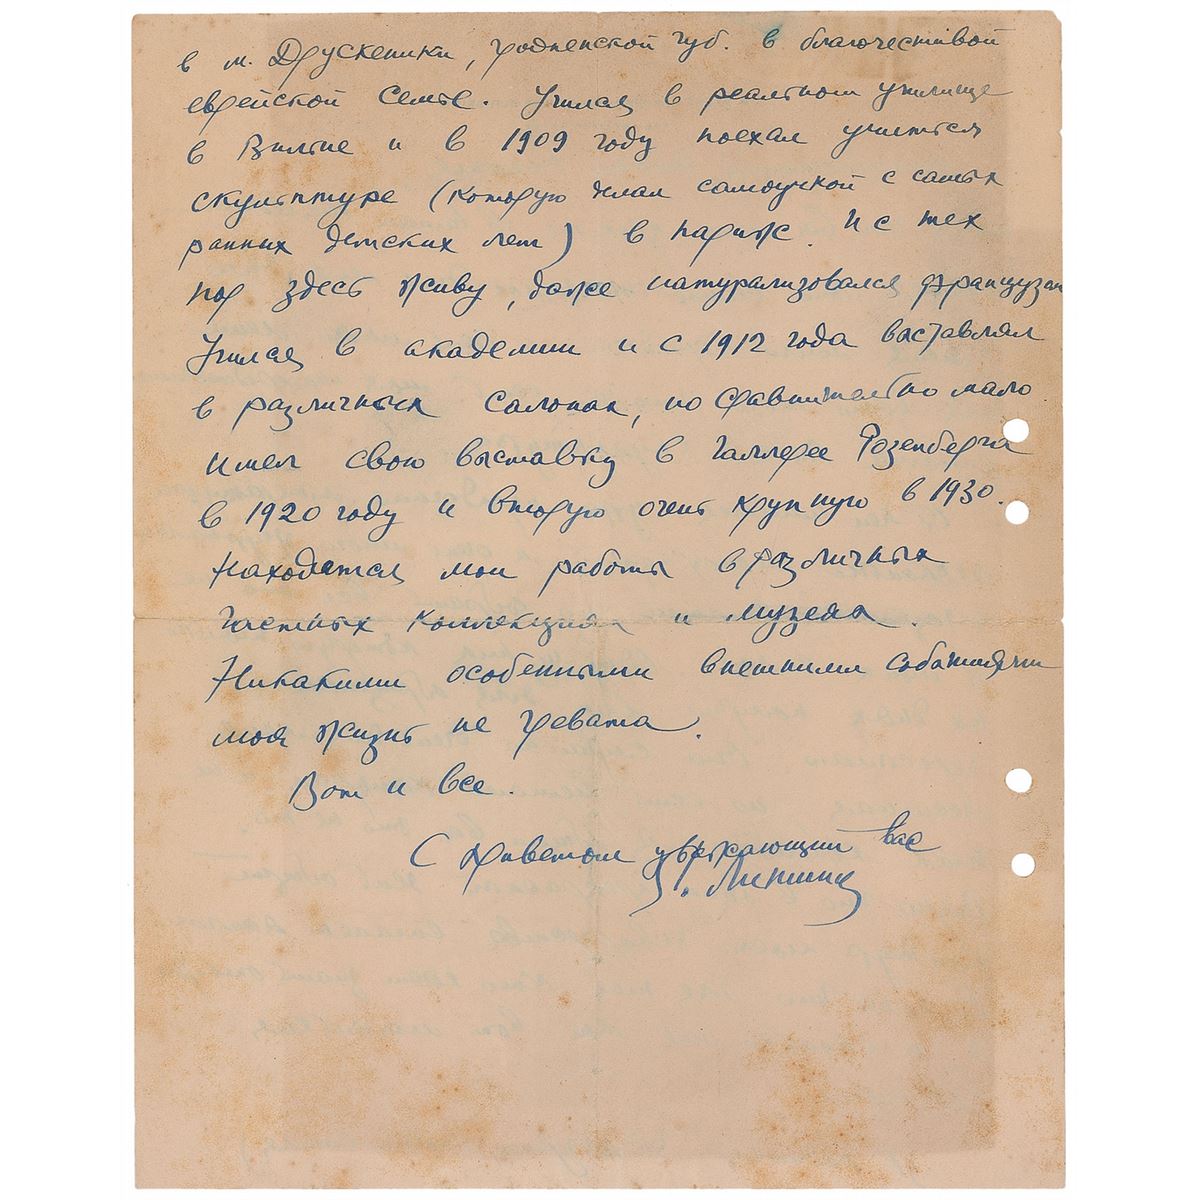 в м. Друскеники, гродненской губ. в благочестивой
еврейской семье. Учился в реальном училище
в Вильне и в 1909 году поехал учиться
скульптуре (которую делал самоучкой с самых
ранних детских лет) в Париж. И с тех
пор здесь живу, даже натурализовался французом
Учился в академии и с 1912 года выставлял
в различных салонах, но сравнительно мало
имел свою выставку в Галлерее Розенберга
в 1920 году и вторую очень крупную в 1930.
Находятся мои работы в различных
частных коллекциях и музеях.
Никакими особенными внешними событиями
моя жизнь не чревата.
Вот и все.
С приветом уважающий вас
Липшиц